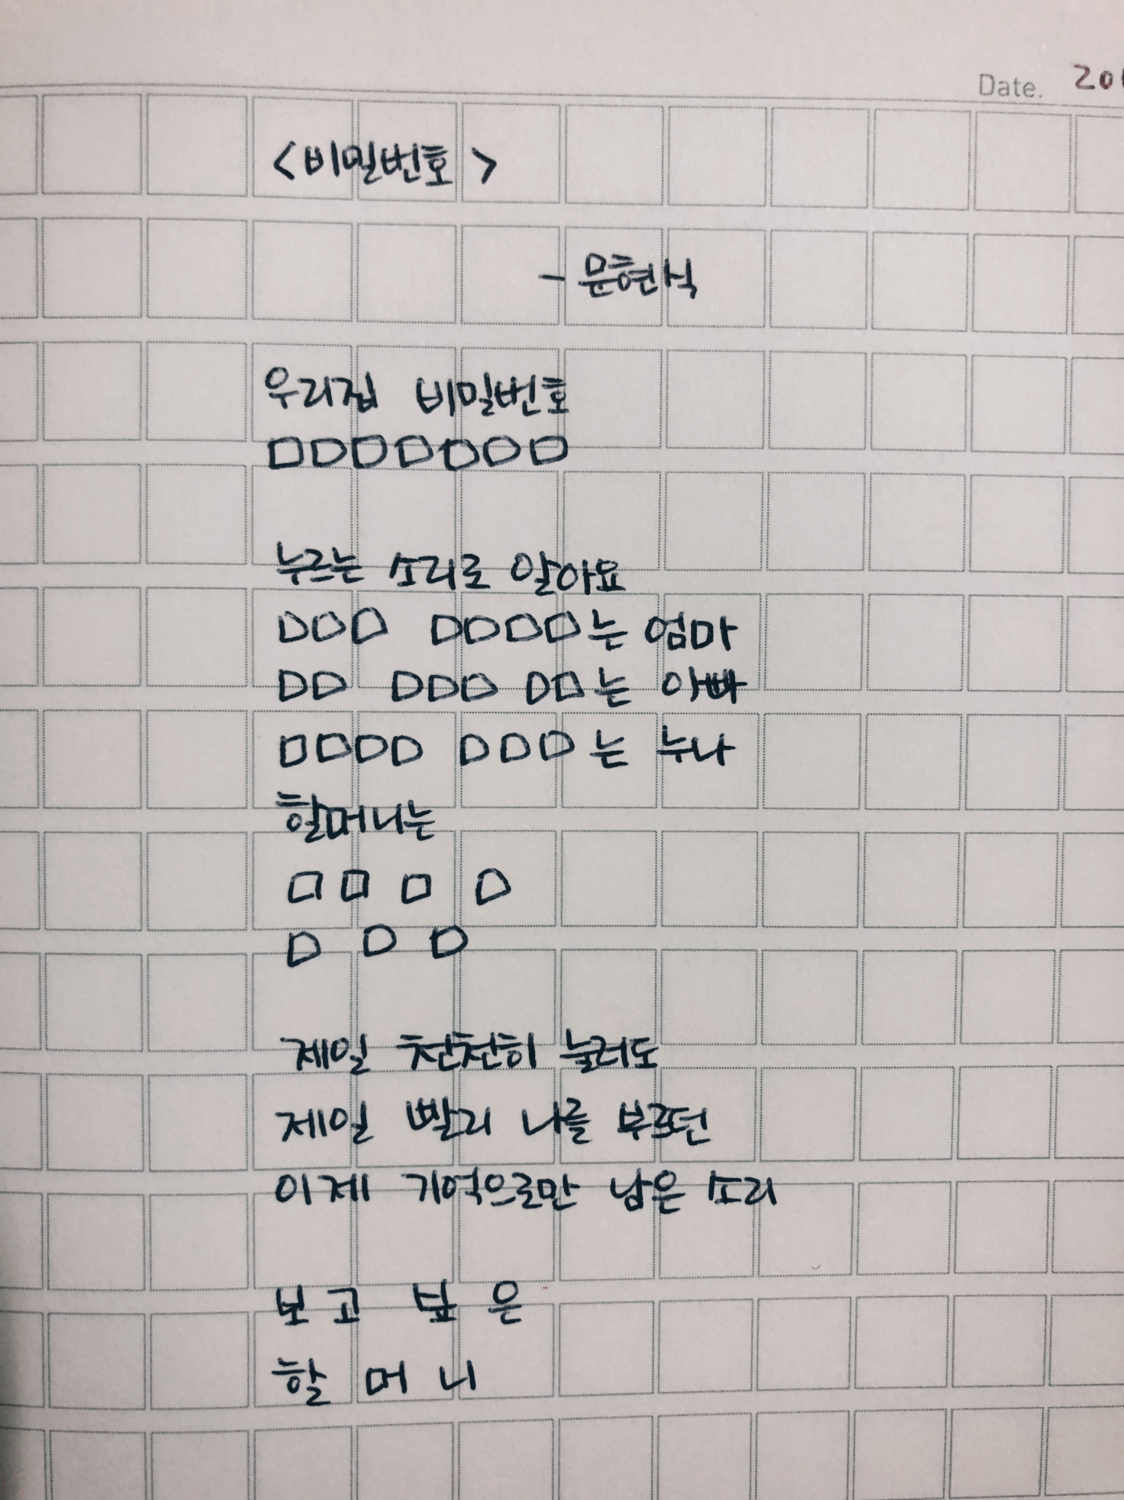 Date. 20
<비밀번호>
- 문현식
우리집 비밀번호
□□□□□□□
누르는 소리로 알아요
□□□ □□□□는 엄마
□□ □□□ □□는 아빠
□□□□ □□□는 누나
할머니는
□ □ □ □
□ □ □
제일 천천히 눌러도
제일 빨리 나를 부르던
이제 기억으로만 남은 소리
보 고 싶 은
할 머 니